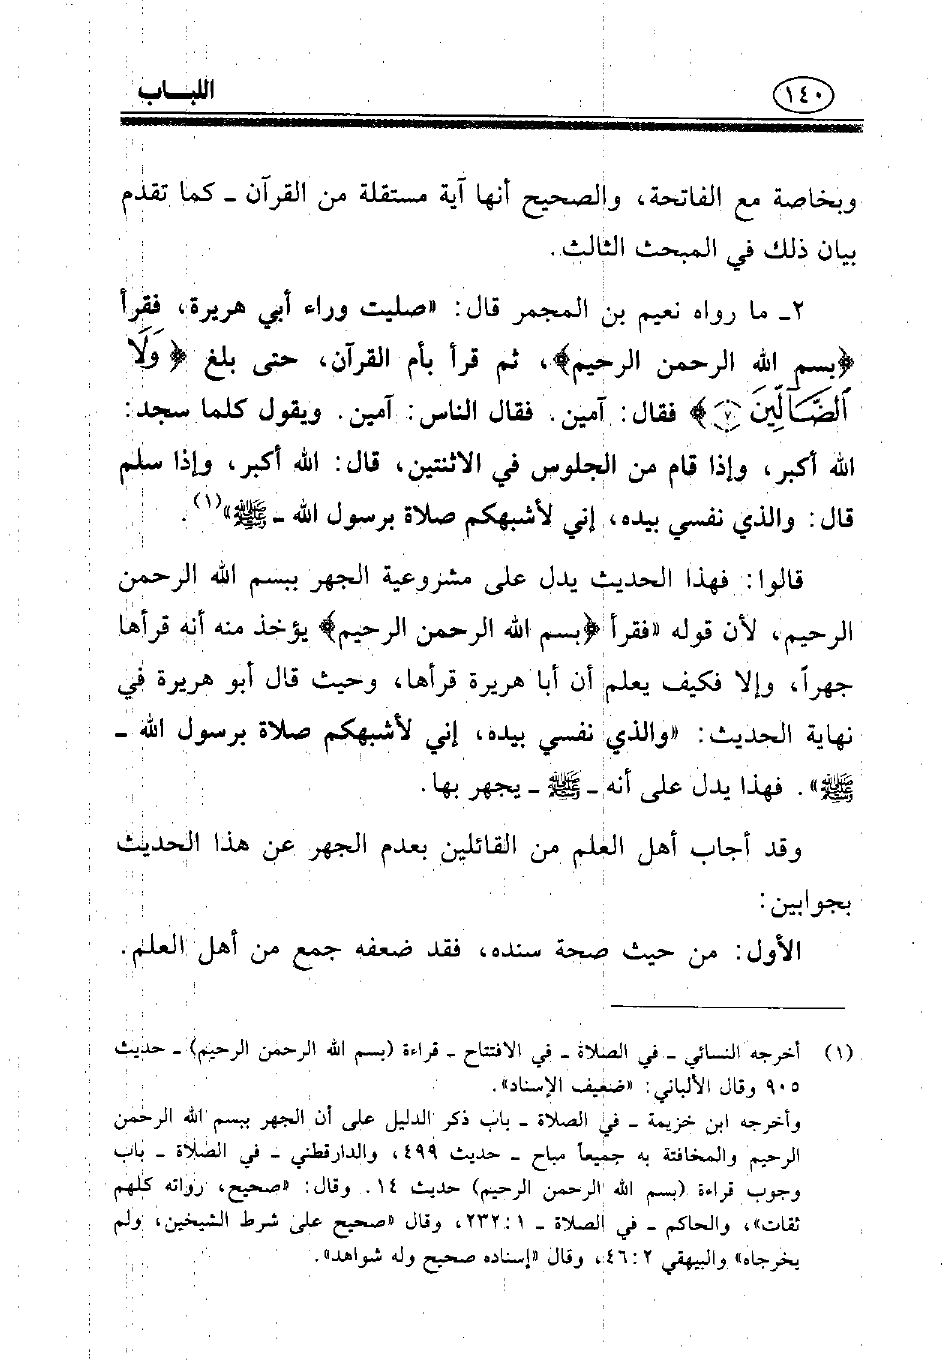 ١٤٠ اللبـــاب
وبخاصة مع الفاتحة، والصحيح أنها آية مستقلة من القرآن ـ كما تقدم
بيان ذلك في المبحث الثالث.
٢ـ ما رواه نعيم بن المجمر قال: «صليت وراء أبي هريرة، فقرأ
﴿بسم الله الرحمن الرحيم﴾، ثم قرأ بأم القرآن، حتى بلغ ﴿وَلَا
ٱلضَّآلِّينَ ٧﴾ فقال: آمين. فقال الناس: آمين. ويقول كلما سجد:
الله أكبر، وإذا قام من الجلوس في الاثنتين، قال: الله أكبر، وإذا سلم
قال: والذي نفسي بيده، إني لأشبهكم صلاة برسول الله ـ ﷺ»(١).
قالوا: فهذا الحديث يدل على مشروعية الجهر ببسم الله الرحمن
الرحيم، لأن قوله «فقرأ ﴿بسم الله الرحمن الرحيم﴾ يؤخذ منه أنه قرأها
جهراً، وإلا فكيف يعلم أن أبا هريرة قرأها، وحيث قال أبو هريرة في
نهاية الحديث: «والذي نفسي بيده، إني لأشبهكم صلاة برسول الله ـ
ﷺ». فهذا يدل على أنه ـ ﷺ ـ يجهر بها.
وقد أجاب أهل العلم من القائلين بعدم الجهر عن هذا الحديث
بجوابين:
الأول: من حيث صحة سنده، فقد ضعفه جمع من أهل العلم.
(١) أخرجه النسائي ـ في الصلاة ـ في الافتتاح ـ قراءة (بسم الله الرحمن الرحيم) ـ حديث
٩٠٥ وقال الألباني: «ضعيف الإسناد».
وأخرجه ابن خزيمة ـ في الصلاة ـ باب ذكر الدليل على أن الجهر ببسم الله الرحمن
الرحيم والمخافتة به جميعاً مباح ـ حديث ٤٩٩، والدارقطني ـ في الصلاة ـ باب
وجوب قراءة (بسم الله الرحمن الرحيم) حديث ١٤. وقال: «صحيح، رواته كلهم
ثقات»، والحاكم ـ في الصلاة ـ ٢٣٢:١، وقال «صحيح على شرط الشيخين، ولم
يخرجاه» والبيهقي ٤٦:٢، وقال «إسناده صحيح وله شواهد».